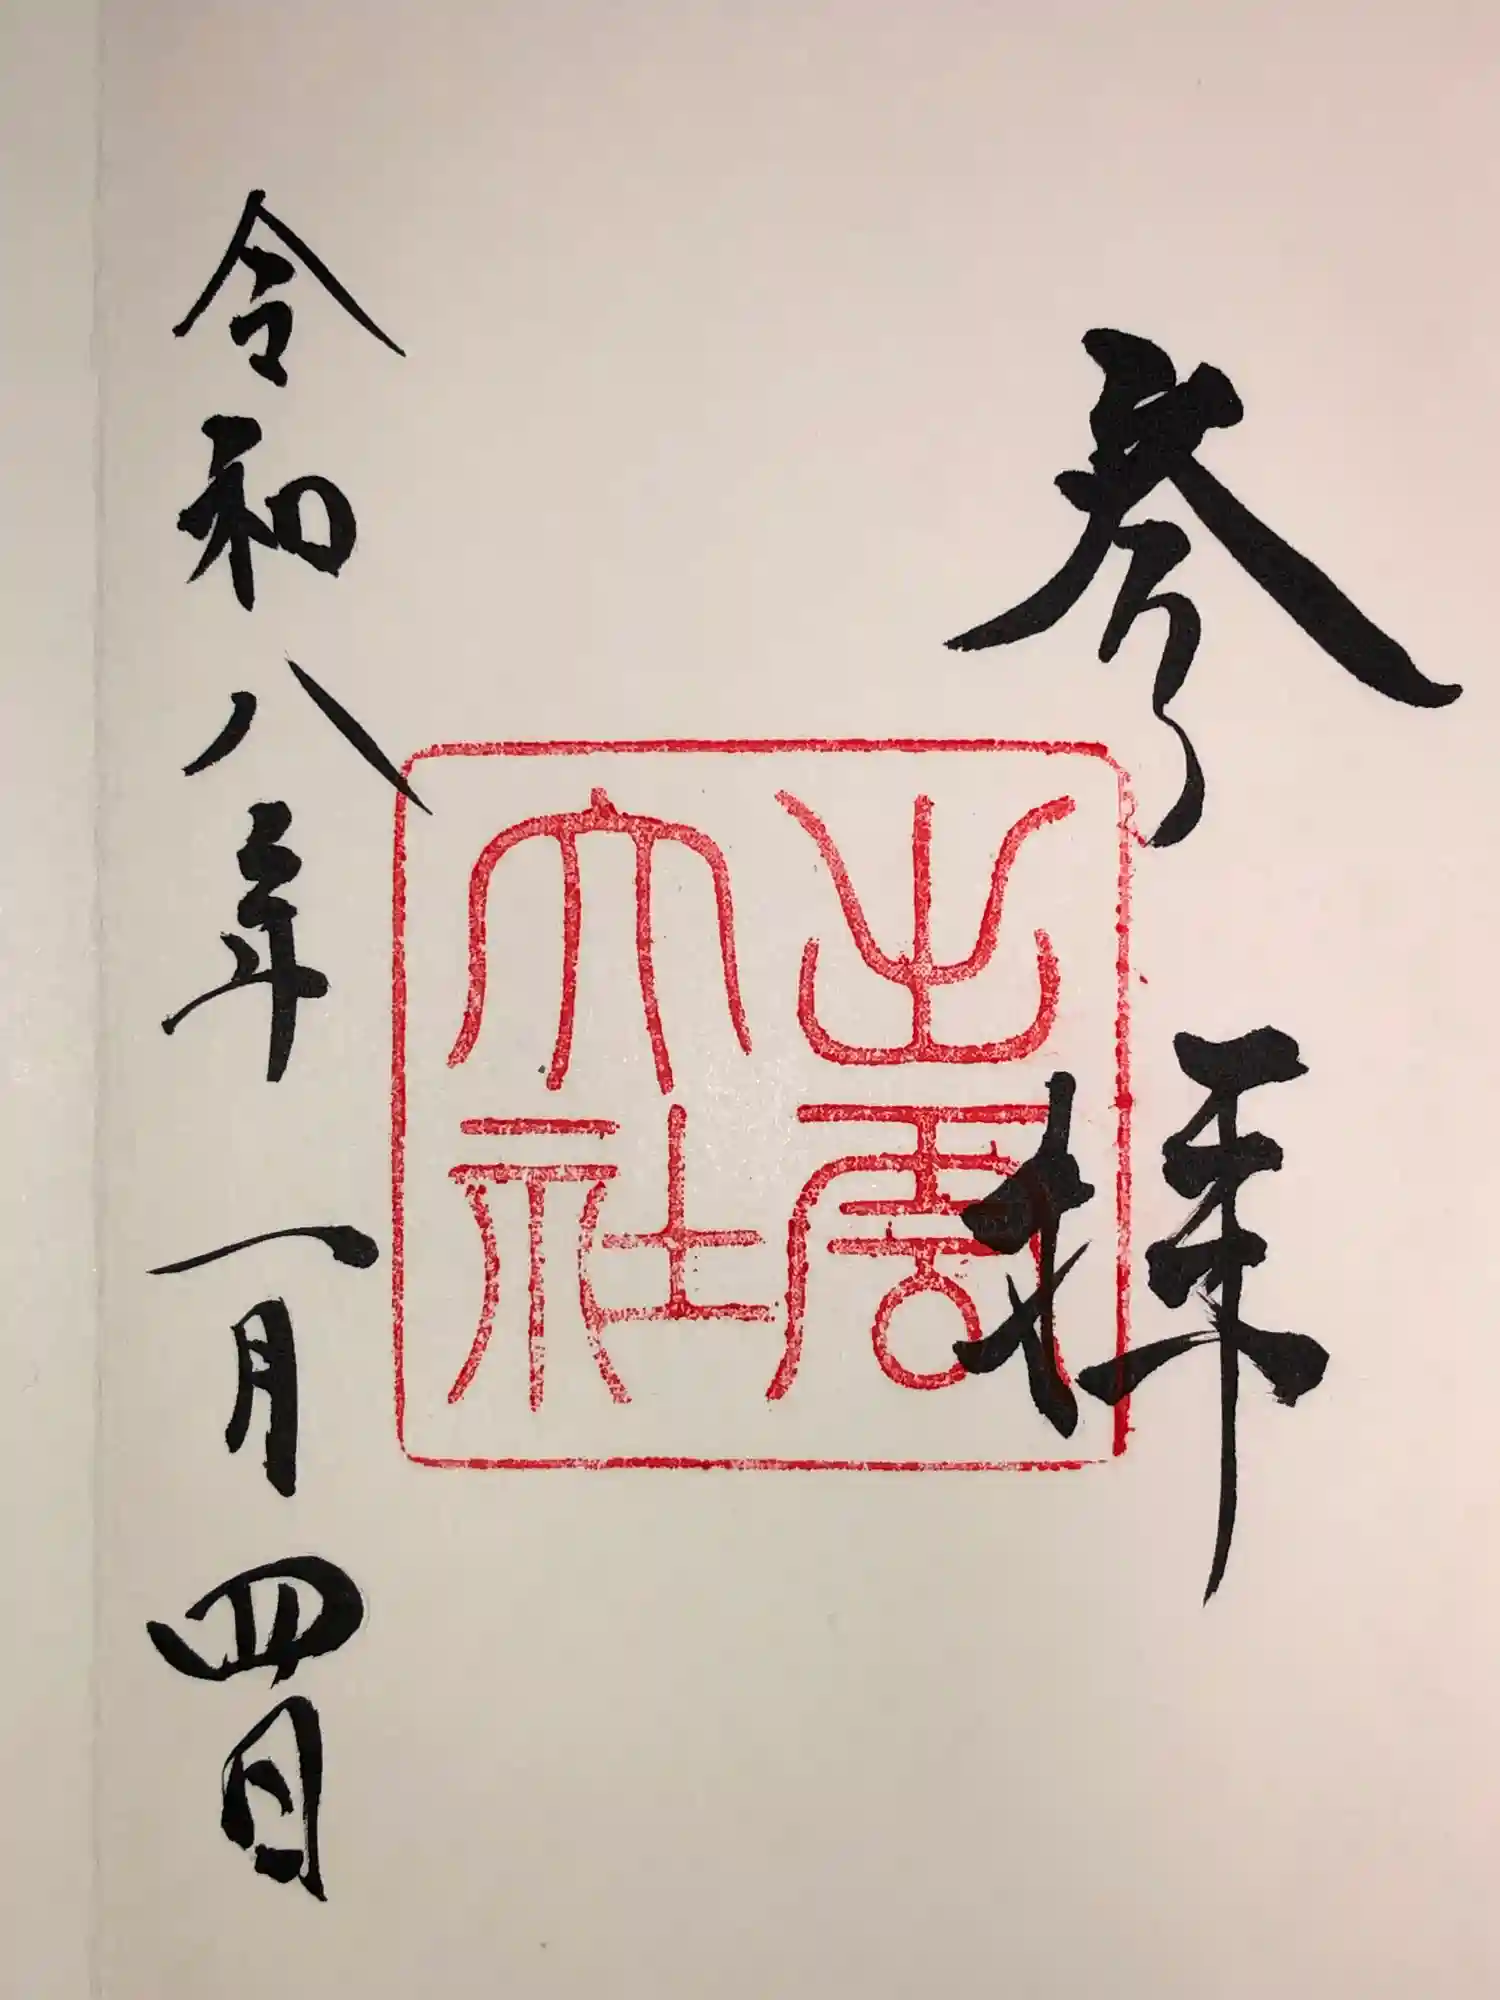 参拝
出雲大社
令和八年一月四日